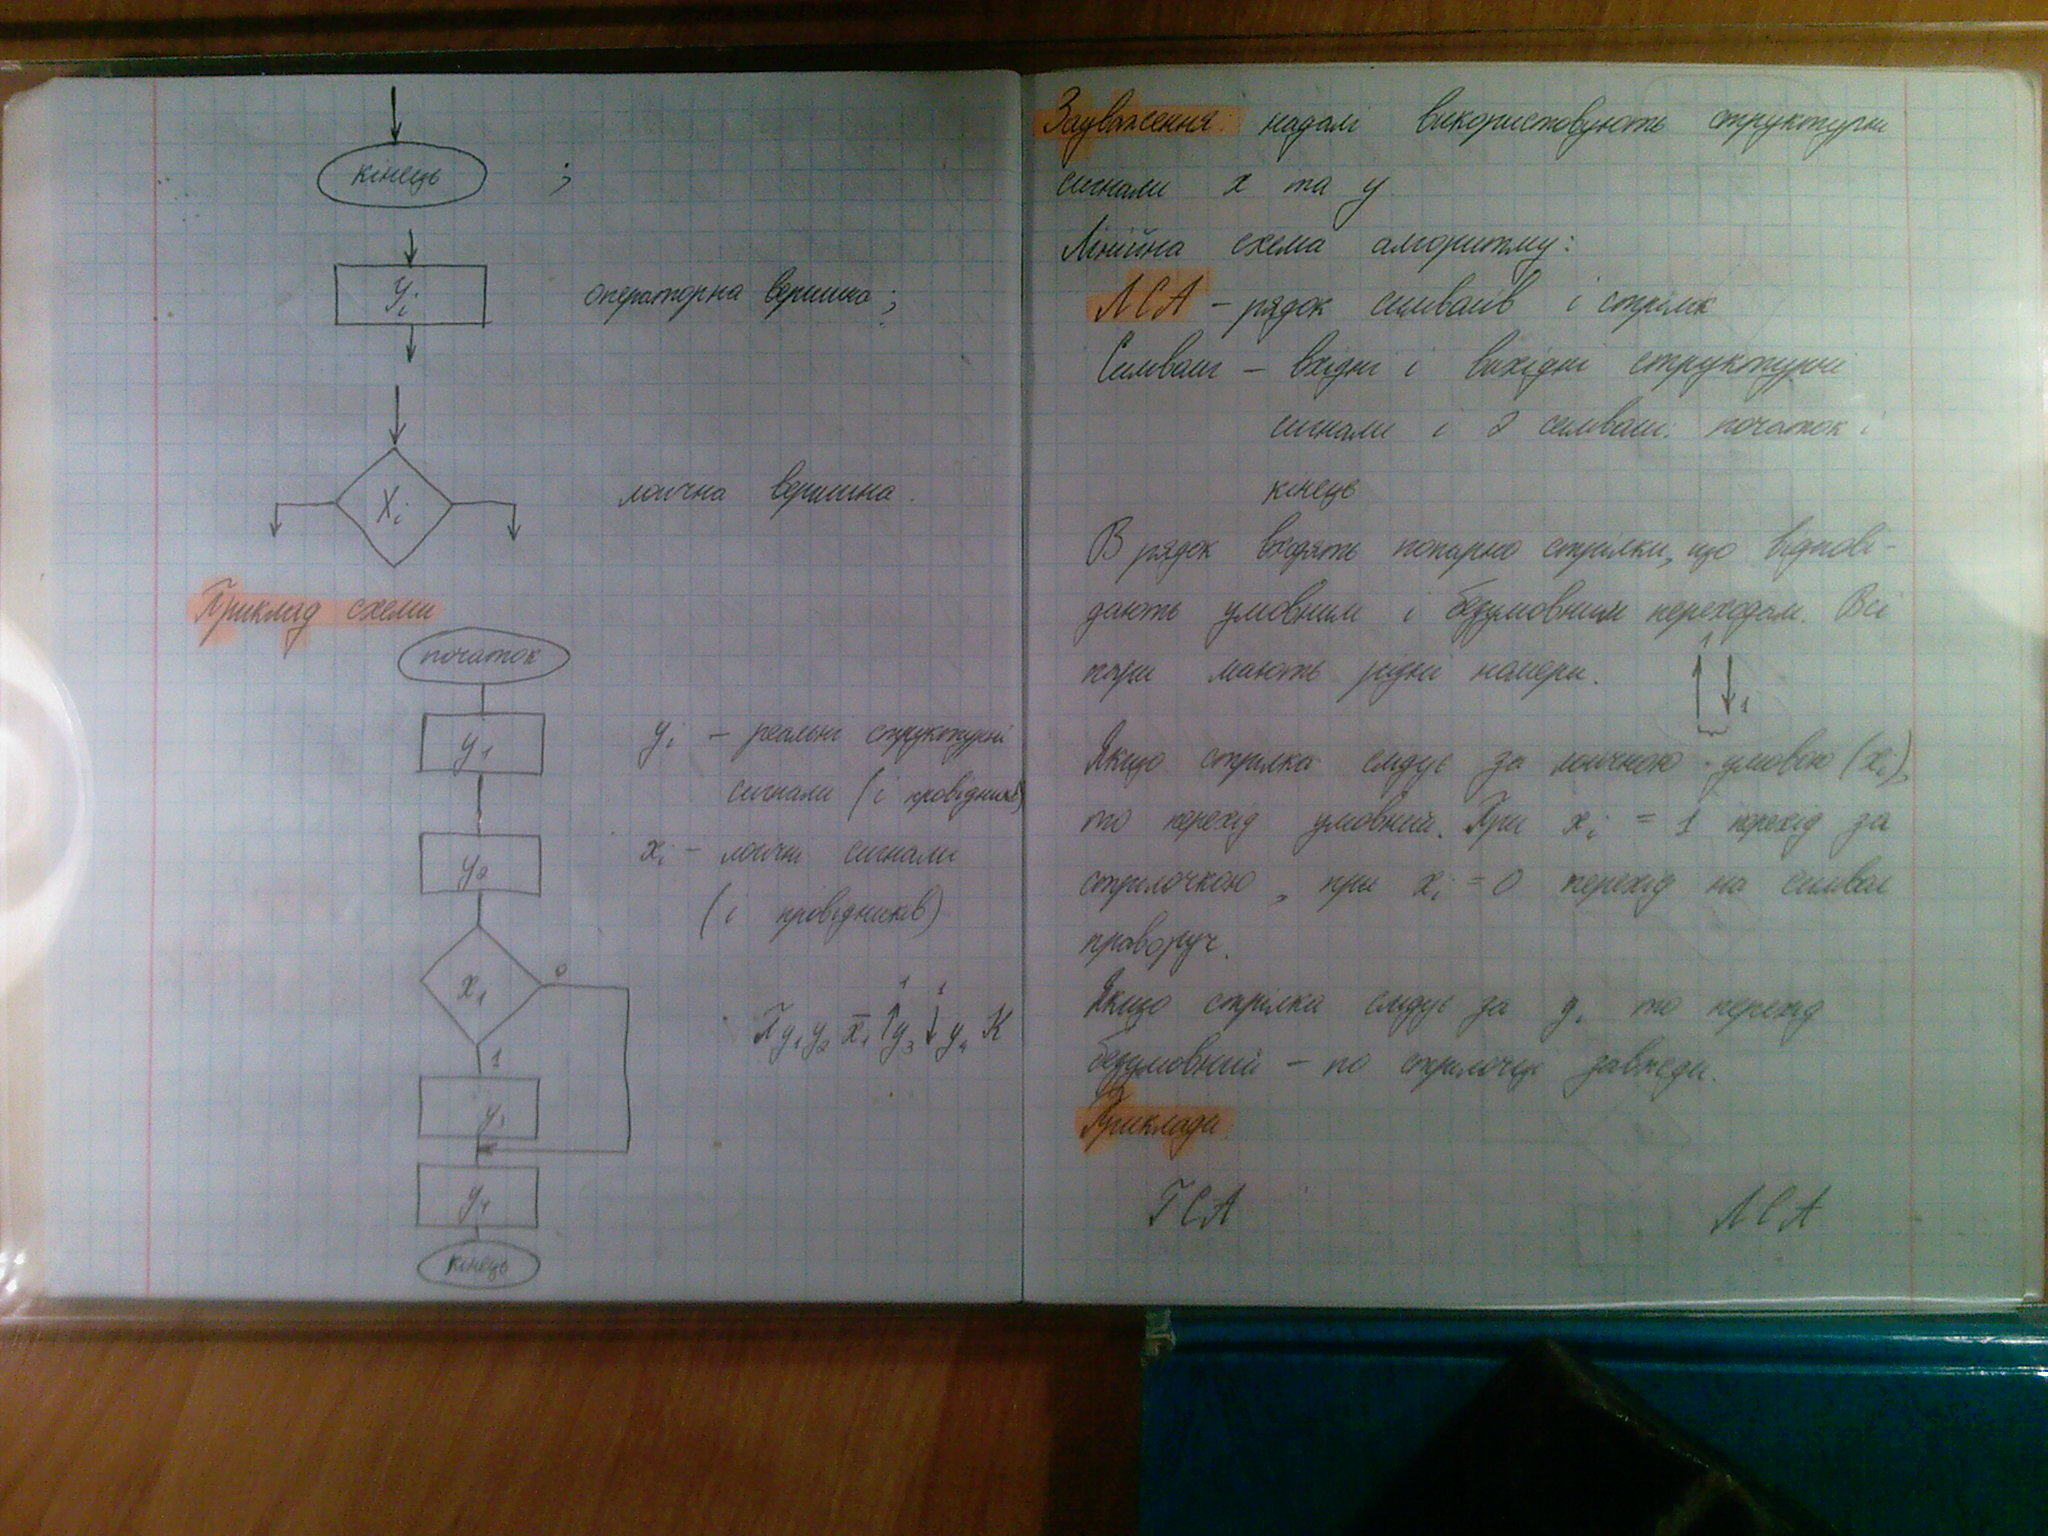 кінець ;
Yi операторна вершина;
Xi логічна вершина.
Приклад схеми
початок
y1 yi – реальні структурні
сигнали (і провідників)
y2 xi – логічні сигнали
(і провідників)
x1 0
П y1 y2 x̄1 ↑1 y3 ↓1 y4 К
1
y3
y4
кінець
Зауваження: надалі використовують структурні
сигнали x та y
Лінійна схема алгоритму:
ЛСА – рядок символів і стрілок
Символи – вхідні і вихідні структурні
сигнали і 2 символи: початок і
кінець
В рядок входять попарно стрілки, що відпові-
дають умовним і безумовним переходам. Всі
пари мають різні номери. 1↑ ↓1
Якщо стрілка слідує за логічною умовою (xi),
то перехід умовний. При xi = 1 перехід за
стрілочкою, при xi = 0 перехід на символ
праворуч.
Якщо стрілка слідує за yi то перехід
безумовний – по стрілочці завжди.
Приклади:
ГСА ЛСА